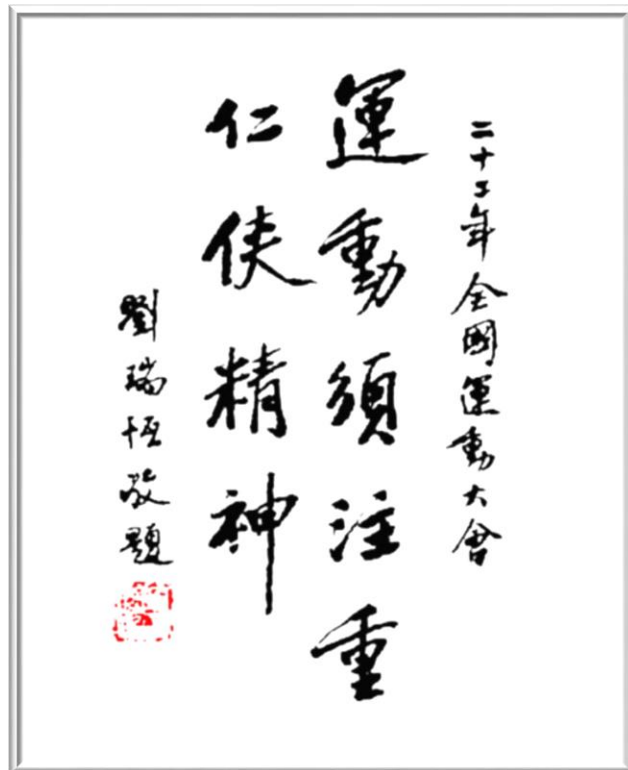 二十二年全國運動大會
運動須注重
仁俠精神
劉瑞恒敬題